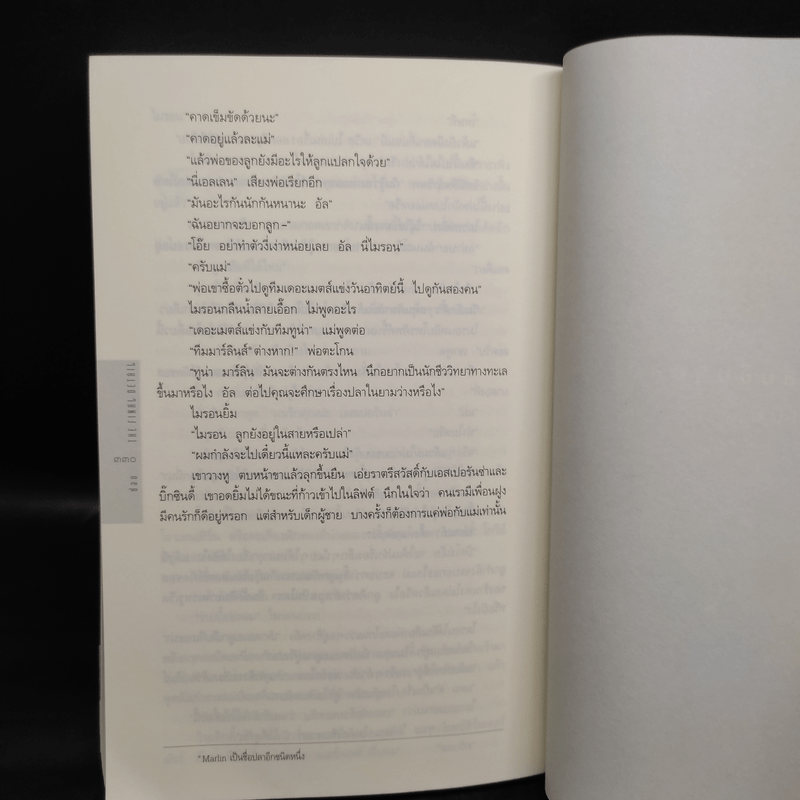 "คาดเข็มขัดด้วยนะ"
"คาดอยู่แล้วละแม่"
"แล้วพ่อของลูกยังมีอะไรให้ลูกแปลกใจด้วย"
"นี่เอลเลน" เสียงพ่อเรียกอีก
"มันอะไรกันนักกันหนานะ อัล"
"ฉันอยากจะบอกลูก–"
"โอ๊ย อย่าทำตัวงี่เง่าหน่อยเลย อัล นี่ไมรอน"
"ครับแม่"
"พ่อเขาซื้อตั๋วไปดูทีมเดอะเมตส์แข่งวันอาทิตย์นี้ ไปดูกันสองคน"
ไมรอนกลืนน้ำลายเอื๊อก ไม่พูดอะไร
"เดอะเมตส์แข่งกับทีมทูน่า" แม่พูดต่อ
"ทีมมาร์ลินส์* ต่างหาก!" พ่อตะโกน
"ทูน่า มาร์ลิน มันจะต่างกันตรงไหน นึกอยากเป็นนักชีววิทยาทางทะเล
ขึ้นมาหรือไง อัล ต่อไปคุณจะศึกษาเรื่องปลาในยามว่างหรือไง"
ไมรอนยิ้ม
"ไมรอน ลูกยังอยู่ในสายหรือเปล่า"
"ผมกำลังจะไปเดี๋ยวนี้แหละครับแม่"
เขาวางหู ตบหน้าขาแล้วลุกขึ้นยืน เอ่ยราตรีสวัสดิ์กับเอสเปอรันซ่าและ
บิ๊กซินดี้ เขาอดยิ้มไม่ได้ขณะที่ก้าวเข้าไปในลิฟต์ นึกในใจว่า คนเรามีเพื่อนฝูง
มีคนรักก็ดีอยู่หรอก แต่สำหรับเด็กผู้ชาย บางครั้งก็ต้องการแค่พ่อกับแม่เท่านั้น
THE FINAL DETAIL
๓๓๐
* Marlin เป็นชื่อปลาอีกชนิดหนึ่ง